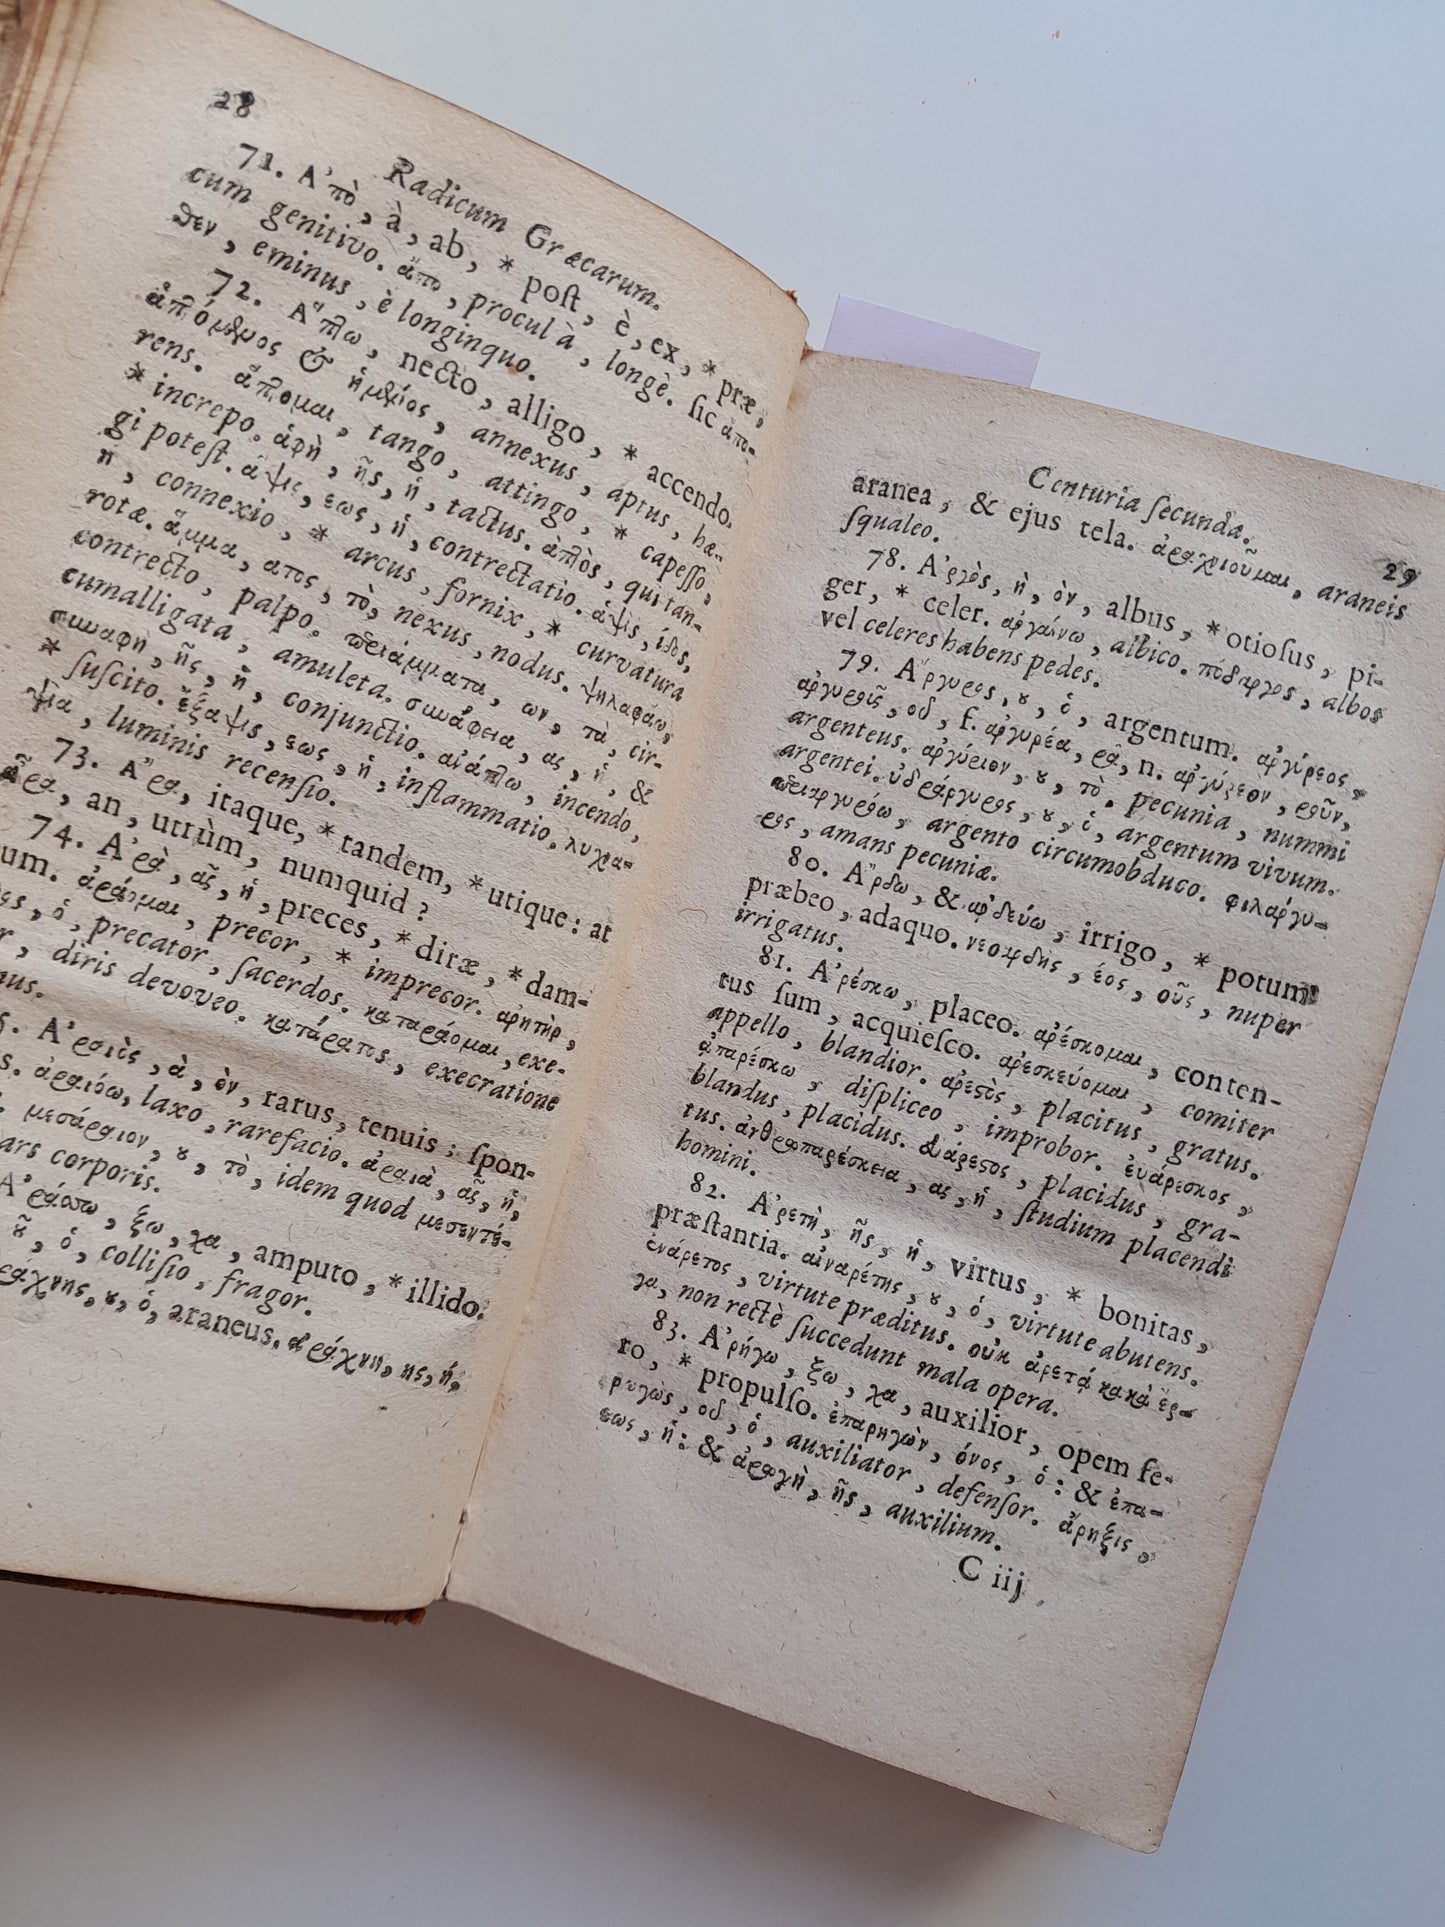 28
Radicum Græcarum.
71. Ἀπὸ, à, ab, * poſt, è, ex, * præ,
cum genitivo. ἄπο, procul à, longè. ſic ἄπο-
θεν, eminus, è longinquo.
72. Ἅπτω, necto, alligo, * accendo.
& annexus, aptus, hæ-
rens. ἅπτομαι, tango, attingo, * capeſſo,
* increpo. ἁφὴ, ῆς, ἡ, tactus. ἁπτὸς, qui tan-
gi poteſt. ἅψις, εως, ἡ, contrectatio. ἁψὶς, ίδος,
ἡ, connexio, * arcus, fornix, * curvatura
rotæ. ἅμμα, ατος, τὸ, nexus, nodus. ψηλαφάω,
contrecto, palpo. περιάμματα, ων, τὰ, cir-
cumalligata, amuleta. συνάφεια, ας, ἡ, &
συναφὴ, ῆς, ἡ, conjunctio. ἀνάπτω, incendo,
* ſuſcito. ἔξαψις, εως, ἡ, inflammatio. λυχνα-
ψία, luminis recenſio.
73. Ἄρα, itaque, * tandem, * utique: at
ἆρα, an, utrùm, numquid?
74. Ἀρὰ, ᾶς, ἡ, preces, * diræ, * dam-
um. ἀράομαι, precor, * imprecor. ἀρητὴρ,
ὁ, precator, ſacerdos. καταράομαι, exe-
r, diris devoveo. κατάρατος, execratione
nus.
5. Ἀραιὸς, ὰ, ὸν, rarus, tenuis; ſpon-
s. ἀραιόω, laxo, rarefacio. ἀραιὰ, ᾶς, ἡ,
μεσάραιον, ȣ, τὸ, idem quod μεσεντέ-
ars corporis.
Ἀράσσω, ξω, χα, amputo, * illido.
ȣ͂, ὁ, colliſio, fragor.
ράχνης, ȣ, ὁ, araneus. ἀράχνη, ης, ἡ,
Centuria ſecunda.
29
aranea, & ejus tela. ἀραχνιοῦμαι, araneis
ſqualeo.
78. Ἀργὸς, ὴ, ὸν, albus, * otioſus, pi-
ger, * celer. ἀργαίνω, albico. πόδαργος, albos
vel celeres habens pedes.
79. Ἄργυρος, ȣ, ὁ, argentum. ἀργύρεος,
ἀργυροῦς, οῦ, f. ἀργυρέα, ρᾶ, n. ἀργύρεον, ροῦν,
argenteus. ἀργύριον, ȣ, τὸ, pecunia, nummi
argentei. ὑδράργυρος, ȣ, ὁ, argentum vivum.
περιαργυρόω, argento circumobduco. φιλάργυ-
ρος, amans pecuniæ.
80. Ἄρδω, & ἀρδεύω, irrigo, * potum
præbeo, adaquo. νεοαρδης, έος, οῦς, nuper
irrigatus.
81. Ἀρέσκω, placeo. ἀρέσκομαι, conten-
tus ſum, acquieſco. ἀρεσκεύομαι, comiter
appello, blandior. ἀρεστὸς, placitus, gratus.
ἀπαρέσκω, diſpliceo, improbor. ἐυάρεσκος,
blandus, placidus. ἐυάρεστος, placidus, gra-
tus. ἀνθρωπαρέσκεια, ας, ἡ, ſtudium placendi
homini.
82. Ἀρετὴ, ῆς, ἡ, virtus, * bonitas,
præſtantia. ἀιναρέτης, ȣ, ὁ, virtute abutens.
ἐνάρετος, virtute præditus. οὐκ ἀρετᾷ κακὰ ἔρ-
γα, non rectè ſuccedunt mala opera.
83. Ἀρήγω, ξω, χα, auxilior, opem fe-
ro, * propulſo. ἐπαρηγὼν, όνος, ὁ: & ἐπα-
ρωγὼς, οῦ, ὁ, auxiliator, defenſor. ἄρηξις,
εως, ἡ: & ἀρωγὴ, ῆς, auxilium.
C iij